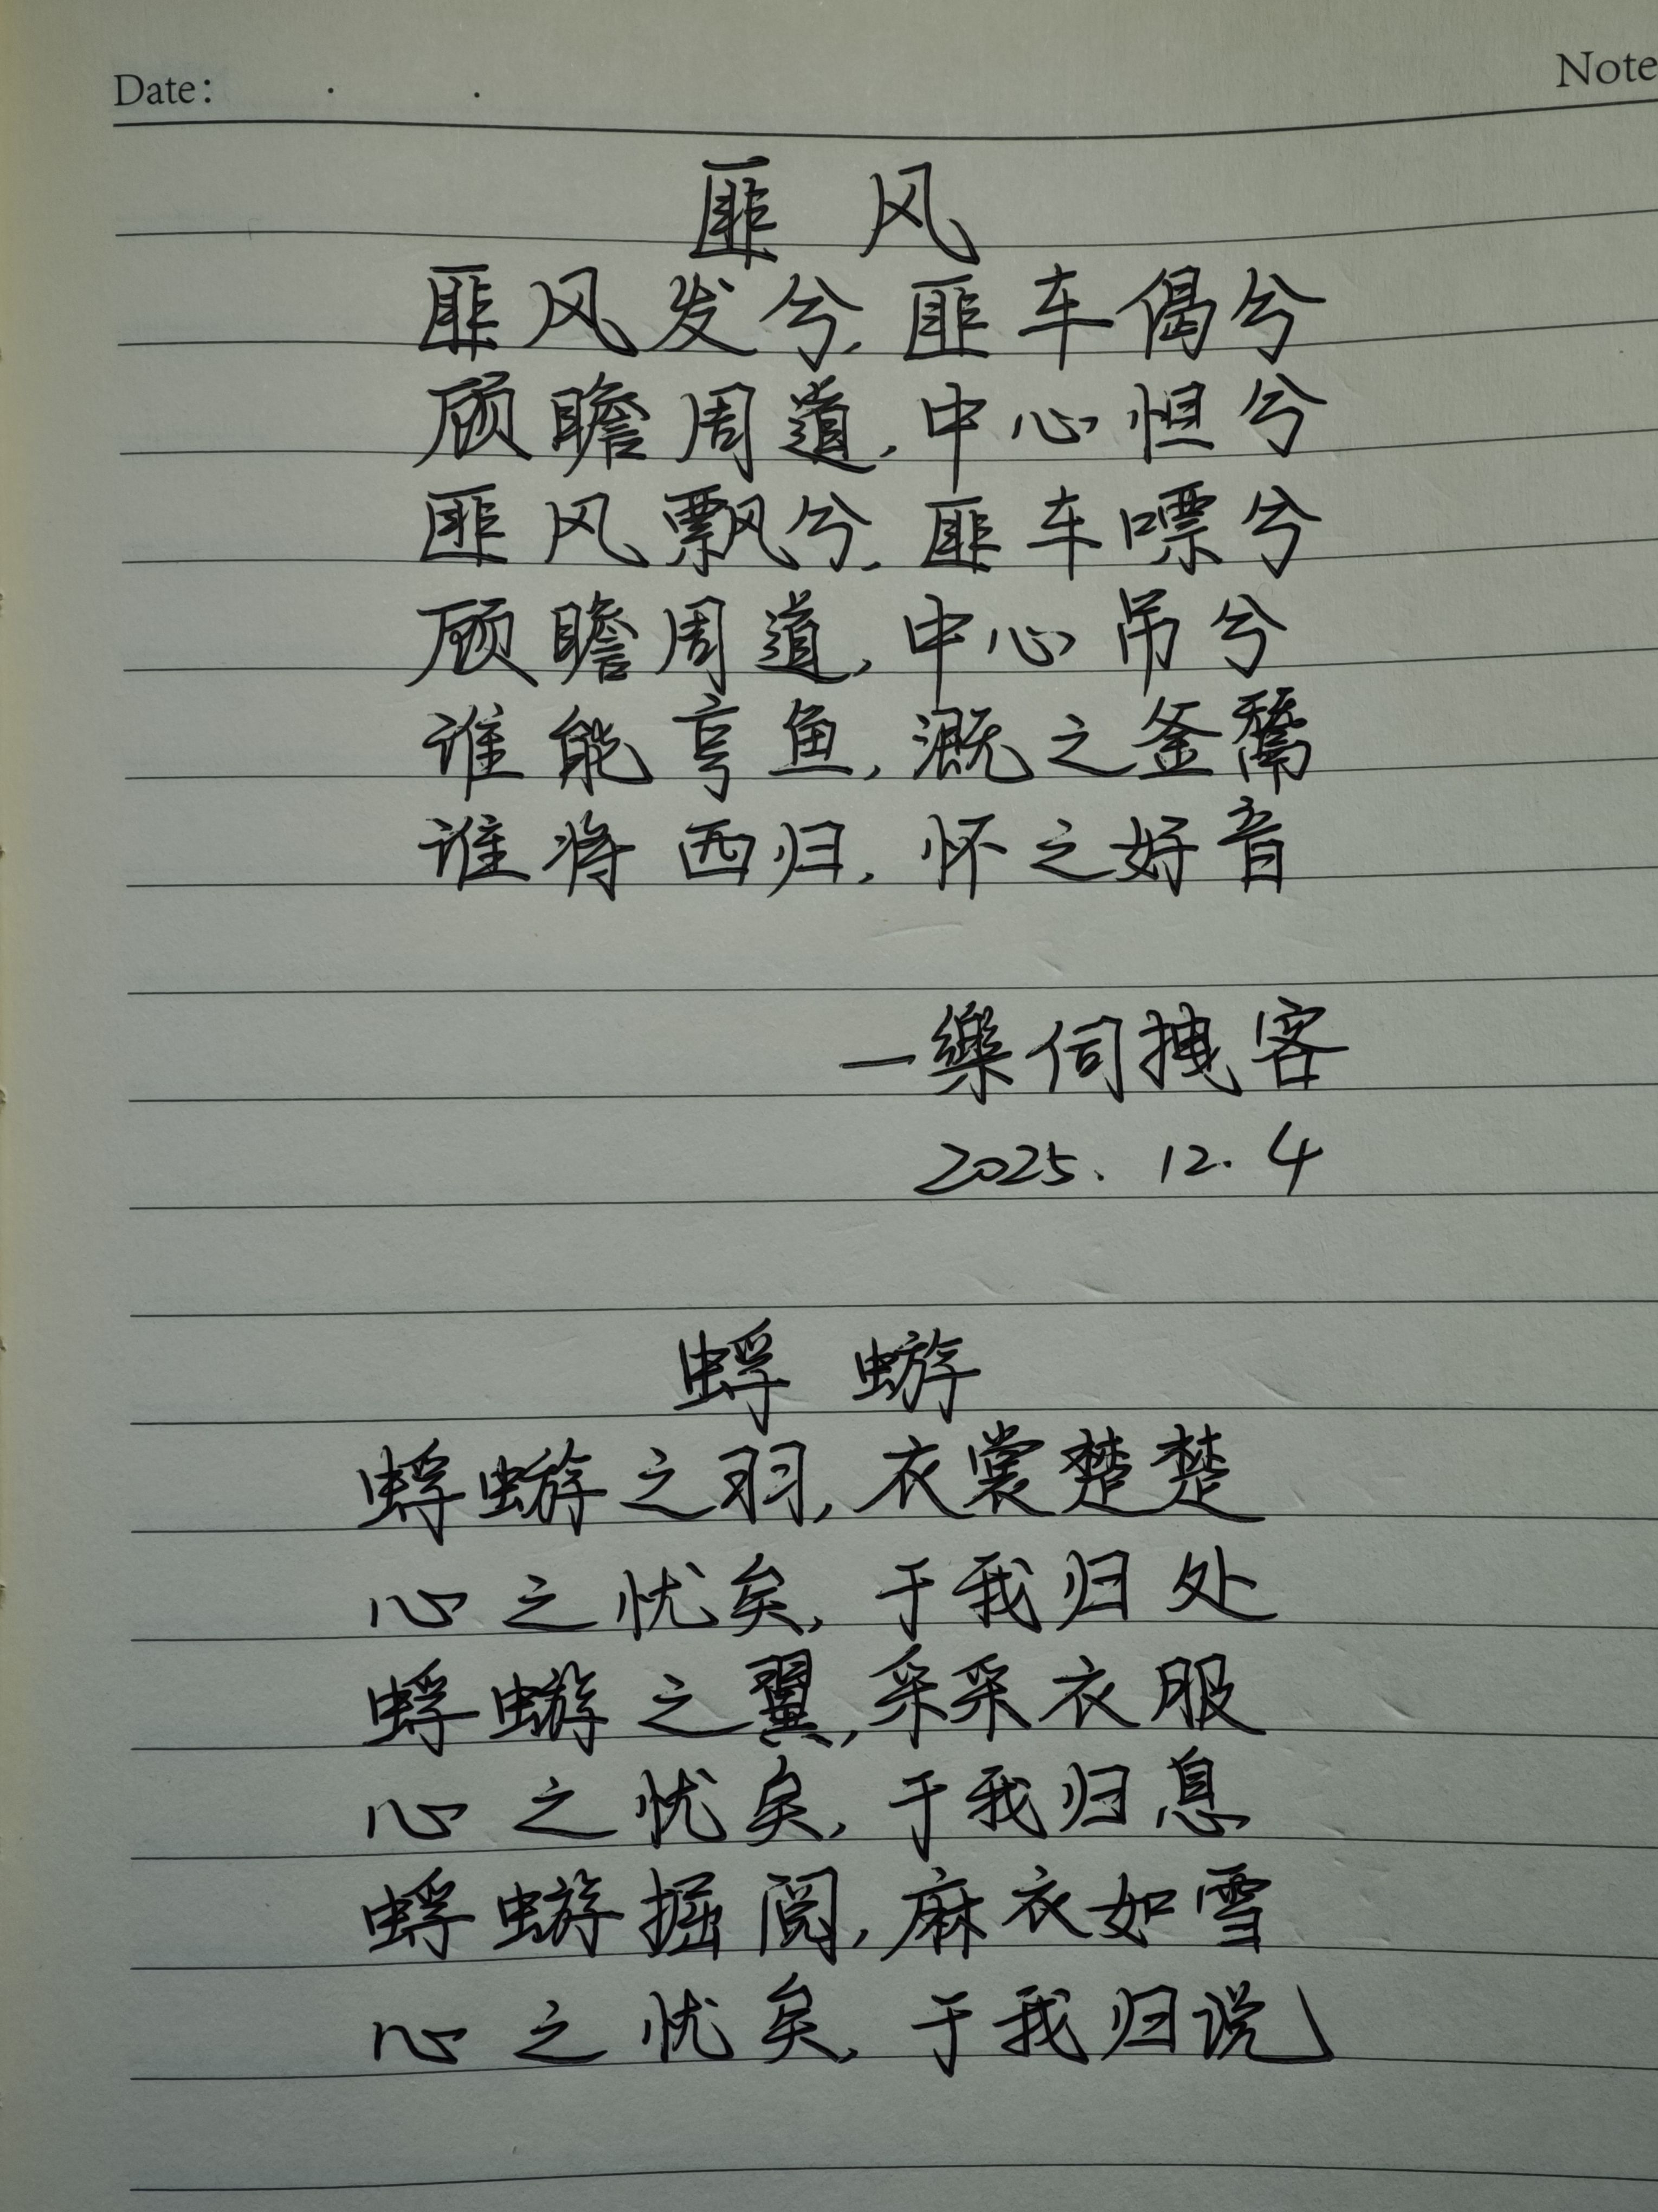 Date: . . Note
匪风
匪风发兮,匪车偈兮
顾瞻周道,中心怛兮
匪风飘兮,匪车嘌兮
顾瞻周道,中心吊兮
谁能亨鱼,溉之釜鬵
谁将西归,怀之好音
一樂伺拽客
2025.12.4
蜉蝣
蜉蝣之羽,衣裳楚楚
心之忧矣,于我归处
蜉蝣之翼,采采衣服
心之忧矣,于我归息
蜉蝣掘阅,麻衣如雪
心之忧矣,于我归说